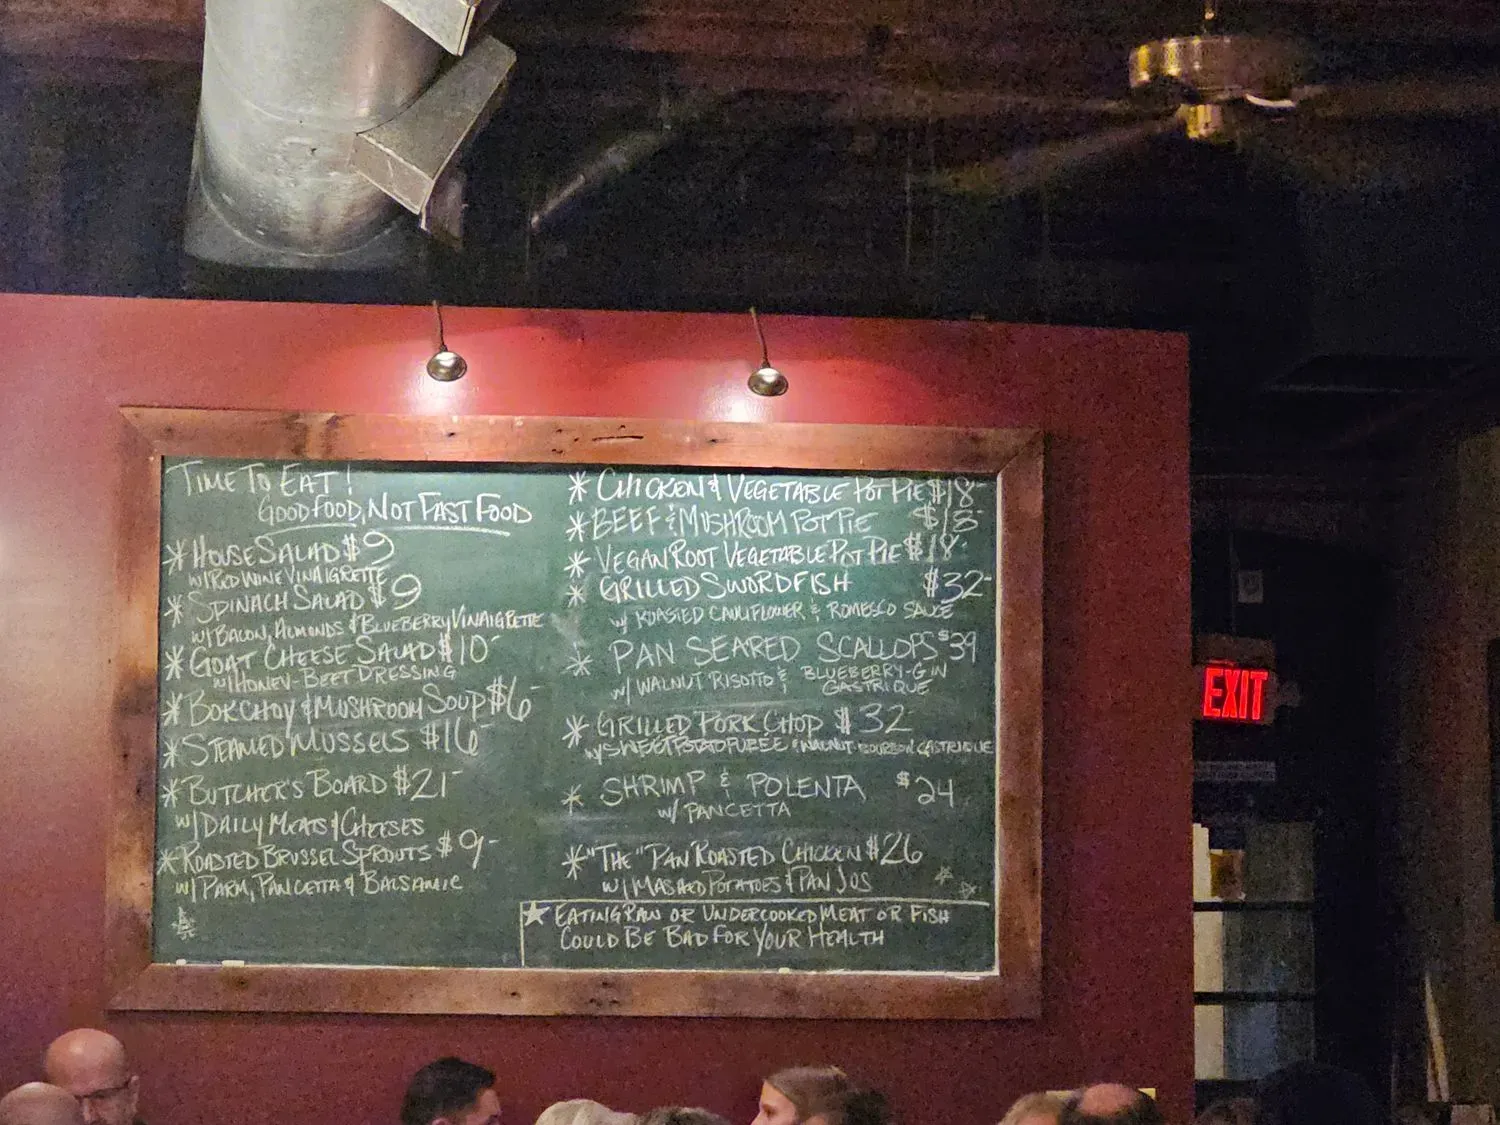 TIME TO EAT!
GOOD FOOD, NOT FAST FOOD
* HOUSE SALAD $9
W/ RED WINE VINAIGRETTE
* SPINACH SALAD $9
W/ BACON, ALMONDS & BLUEBERRY VINAIGRETTE
* GOAT CHEESE SALAD $10-
W/ HONEY-BEET DRESSING
* BOK CHOY & MUSHROOM SOUP $6-
* STEAMED MUSSELS $16-
* BUTCHER'S BOARD $21-
W/ DAILY MEATS & CHEESES
* ROASTED BRUSSEL SPROUTS $9-
W/ PARM, PANCETTA & BALSAMIC
* CHICKEN & VEGETABLE POT PIE $18-
* BEEF & MUSHROOM POT PIE $18-
* VEGAN ROOT VEGETABLE POT PIE $18-
* GRILLED SWORDFISH $32-
W/ ROASTED CAULIFLOWER & ROMESCO SAUCE
* PAN SEARED SCALLOPS $39
W/ WALNUT RISOTTO & BLUEBERRY-GIN
GASTRIQUE
* GRILLED PORK CHOP $32
W/ SWEET POTATO PUREE & WALNUT BOURBON GASTRIQUE
* SHRIMP & POLENTA $24
W/ PANCETTA
* "THE" "PAN" ROASTED CHICKEN $26
W/ MASHED POTATOES & PAN JUS
★ EATING RAW OR UNDERCOOKED MEAT OR FISH
COULD BE BAD FOR YOUR HEALTH
EXIT